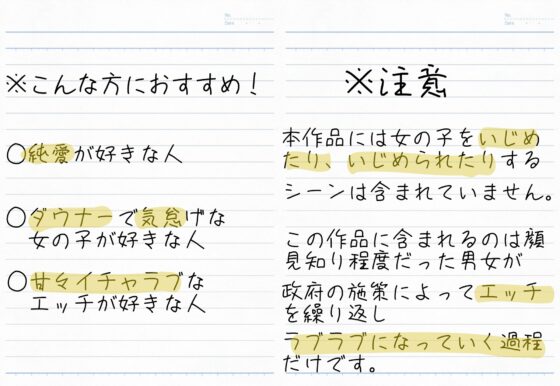 No.
Date
※こんな方におすすめ！
○純愛が好きな人
○ダウナーで気怠げな
女の子が好きな人
○甘々イチャラブな
エッチが好きな人
No.
Date
※注意
本作品には女の子をいじめ
たり、いじめられたりする
シーンは含まれていません。
この作品に含まれるのは顔
見知り程度だった男女が
政府の施策によってエッチ
を繰り返し
ラブラブになっていく過程
だけです。